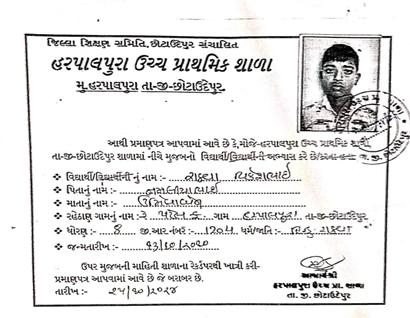 જિલ્લા શિક્ષણ સમિતિ, છોટાઉદેપુર સંચાલિત
હરપાલપુરા ઉચ્ચ પ્રાથમિક શાળા
મુ.હરપાલપુરા તા-જી-છોટાઉદેપુર
આથી પ્રમાણપત્ર આપવામાં આવે છે કે, મોજે-હરપાલપુરા ઉચ્ચ પ્રાથમિક શાળા,
તા-જી-છોટાઉદેપુર શાળામાં નીચે મુજબનો વિદ્યાર્થી/વિદ્યાર્થીની અભ્યાસ કરે છે/
વિદ્યાર્થી/વિદ્યાર્થીની નું નામ:- રાઠવા
પિતાનું નામ:-
માતાનું નામ:-
રહેઠાણ ગામનું નામ:- ગામ હરપાલપુરા તા-જી-છોટાઉદેપુર
ધોરણ:- 8 જી.આર નંબર:- ૧૨૦૫ ધર્મ/જાતિ:- હિન્દુ રાઠવા
જન્મતારીખ:- ૧૩/૧૦/૨૦૧૦
ઉપર મુજબની માહિતી શાળાના રેકર્ડપરથી ખાત્રી કરી-
પ્રમાણપત્ર આપવામાં આવે છે જે બરાબર છે.
તારીખ:- ૨૫/૧૦/૨૦૨૪
આચાર્યશ્રી
હરપાલપુરા ઉચ્ચ પ્રા. શાળા
તા. જી. છોટાઉદેપુર